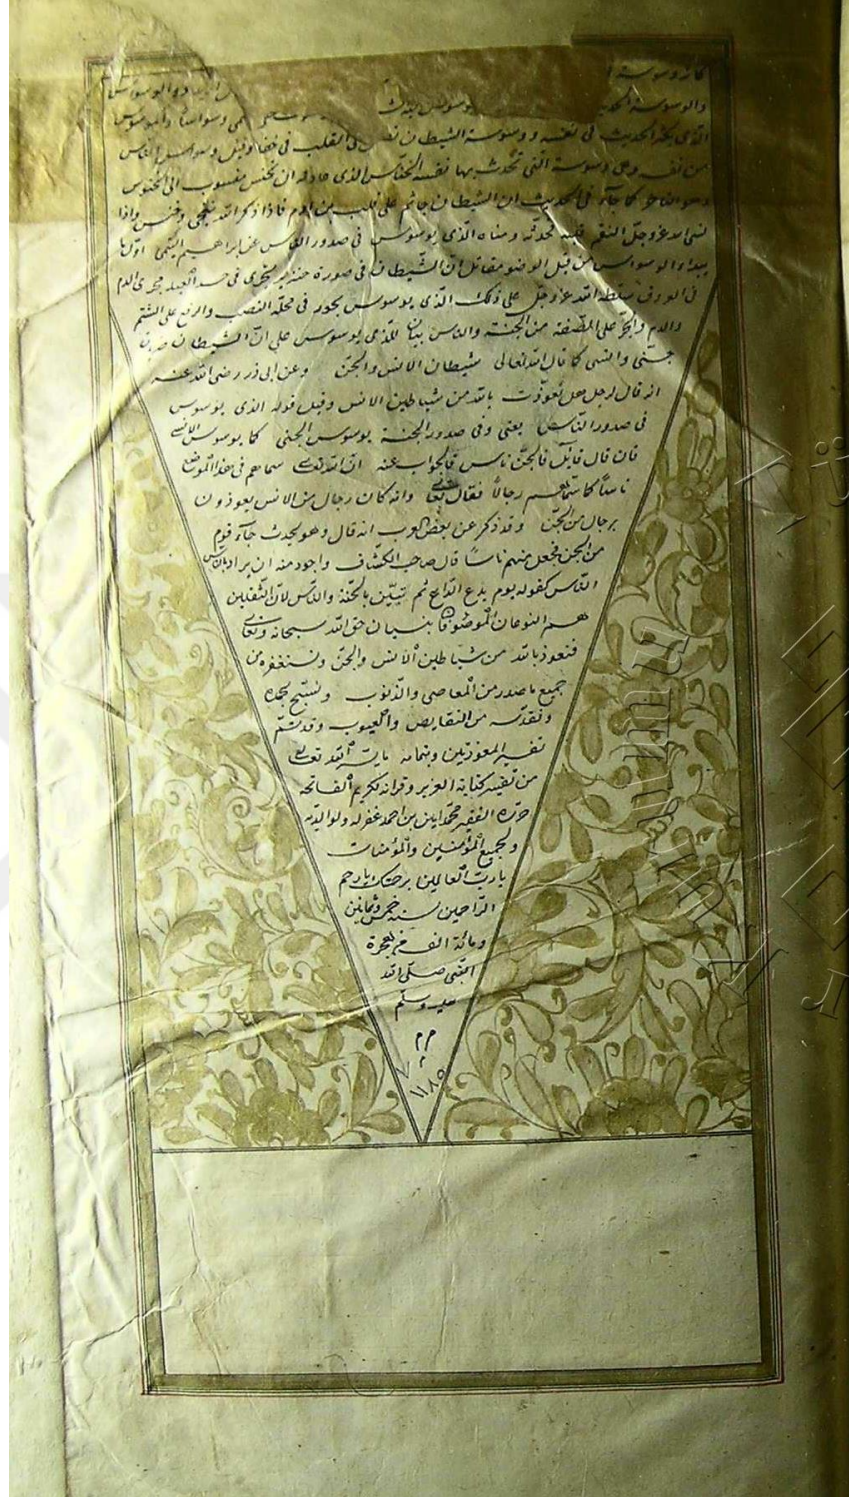 كأنه وسوسة
والوسوسة الحديث
الذي يحدث في نفسه ووسوسة الشيطان تصل الى القلب في خفاء وقيل وسواس الناس
من نفسه وهي وسوسة التي تحدث بها نفسه الخناس الذي عادته ان يخنس منسوب الى الخنوس
وهو التاخر كما جاء في الحديث ان الشيطان جاثم على قلب بن ادم فاذا ذكر الله تنحى وخنس واذا
نسي الله عز وجل التقم قلبه فحدثه ومناه الذي يوسوس في صدور الناس عن ابراهيم التيمي اول ما
يبداء الوسواس من قبل الوضو مقاتل ان الشيطان في صورة خنزير يجري في جسد العبد مجرى الدم
في العروق سلطه الله عز وجل على ذلك الذي يوسوس يجوز في محله النصب والرفع على الشتم
والذم والجر على الصفة من الجنة والناس بيان للذي يوسوس على ان الشيطان ضربان
جني وانسي كما قال الله تعالى شيطان الانس والجن وعن ابي ذر رضي الله عنه
انه قال لرجل هل تعوذت بالله من شياطين الانس وقيل قوله الذي يوسوس
في صدور الناس يعني وفي صدور الجنة يوسوس الجني كما يوسوس الانسي
فان قال قائل فالجن ناس فالجواب عنه ان الله تعالى سماهم في هذا الموضع
ناسا كما سماهم رجالا فقال تعالى وانه كان رجال من الانس يعوذون
برجال من الجن وقد ذكر عن بعض العرب انه قال وهو يحدث جآء قوم
من الجن فجعل منهم ناسا قال صاحب الكشاف واجود منه ان يراد بالناس
الناس كقوله يوم يدع الداع ثم تبين بالجنة والناس لان الثقلين
هم النوعان الموصوفان بنسيان حق الله سبحانه وتعالى
فنعوذ بالله من شياطين الانس والجن ونستغفره من
جميع ما صدر من المعاصي والذنوب ونسبح بحمده
ونقدسه من النقايص والعيوب وقد تم
تفسير المعوذتين وبتمامه ما يسر الله تعالى
من تفسير كتابه العزيز وقرانه الكريم الفاتحه
حرره الفقير محمد امين بن احمد غفر له ولوالديه
ولجميع المؤمنين والمؤمنات
يا رب العالمين برحمتك يا ارحم
الراحمين سنه خمس وثمانين
ومائة الف من هجرة
النبي صلى الله
عليه وسلم
م م
م
١١٨٥